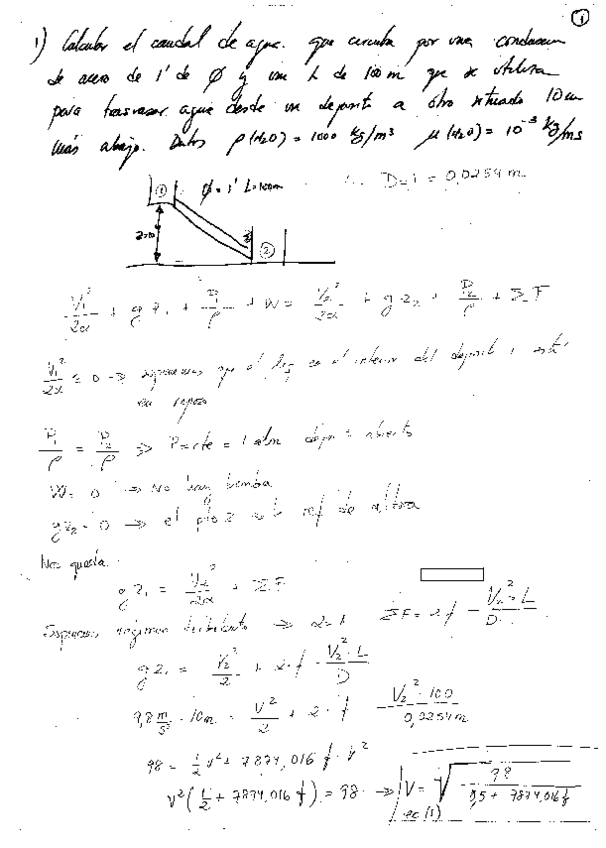 ①
1) Calcular el caudal de agua que circula por una conduccion
de acero de 1' de Ø y una L de 100 m que se utiliza
para trasvasar agua desde un deposito a otro situado 10 m
más abajo. Datos ρ(H₂O) = 1000 kg/m³ μ(H₂O) = 10⁻³ kg/ms
① Ø = 1' L=100m D=1' = 0,0254 m
Z=10
②
V₁²/2α + g z₁ + P₁/ρ + W = V₂²/2α + g z₂ + P₂/ρ + ΣF
V₁²/2α ≈ 0 → suponemos que el liq en el interior del deposito 1 está
en reposo
P₁/ρ = P₂/ρ ⇒ P=cte = 1 atm abierto
W = 0 → No hay bomba
g z₂ = 0 → el pto 2 es la ref de altura
Nos queda:
g z₁ = V₂²/2α + ΣF
regimen turbulento ⇒ α=1 ΣF = 2f · V₂²·L/D
g z₁ = V₂²/2 + 2·f · V₂²·L/D
9,8 m/s² · 10m = V²/2 + 2·f V₂²·100/0,0254m
98 = 1/2 V² + 7874,016 f · V²
V² (1/2 + 7874,016 f) = 98 → V = √(98/(0,5 + 7874,016 f))
ec (1)